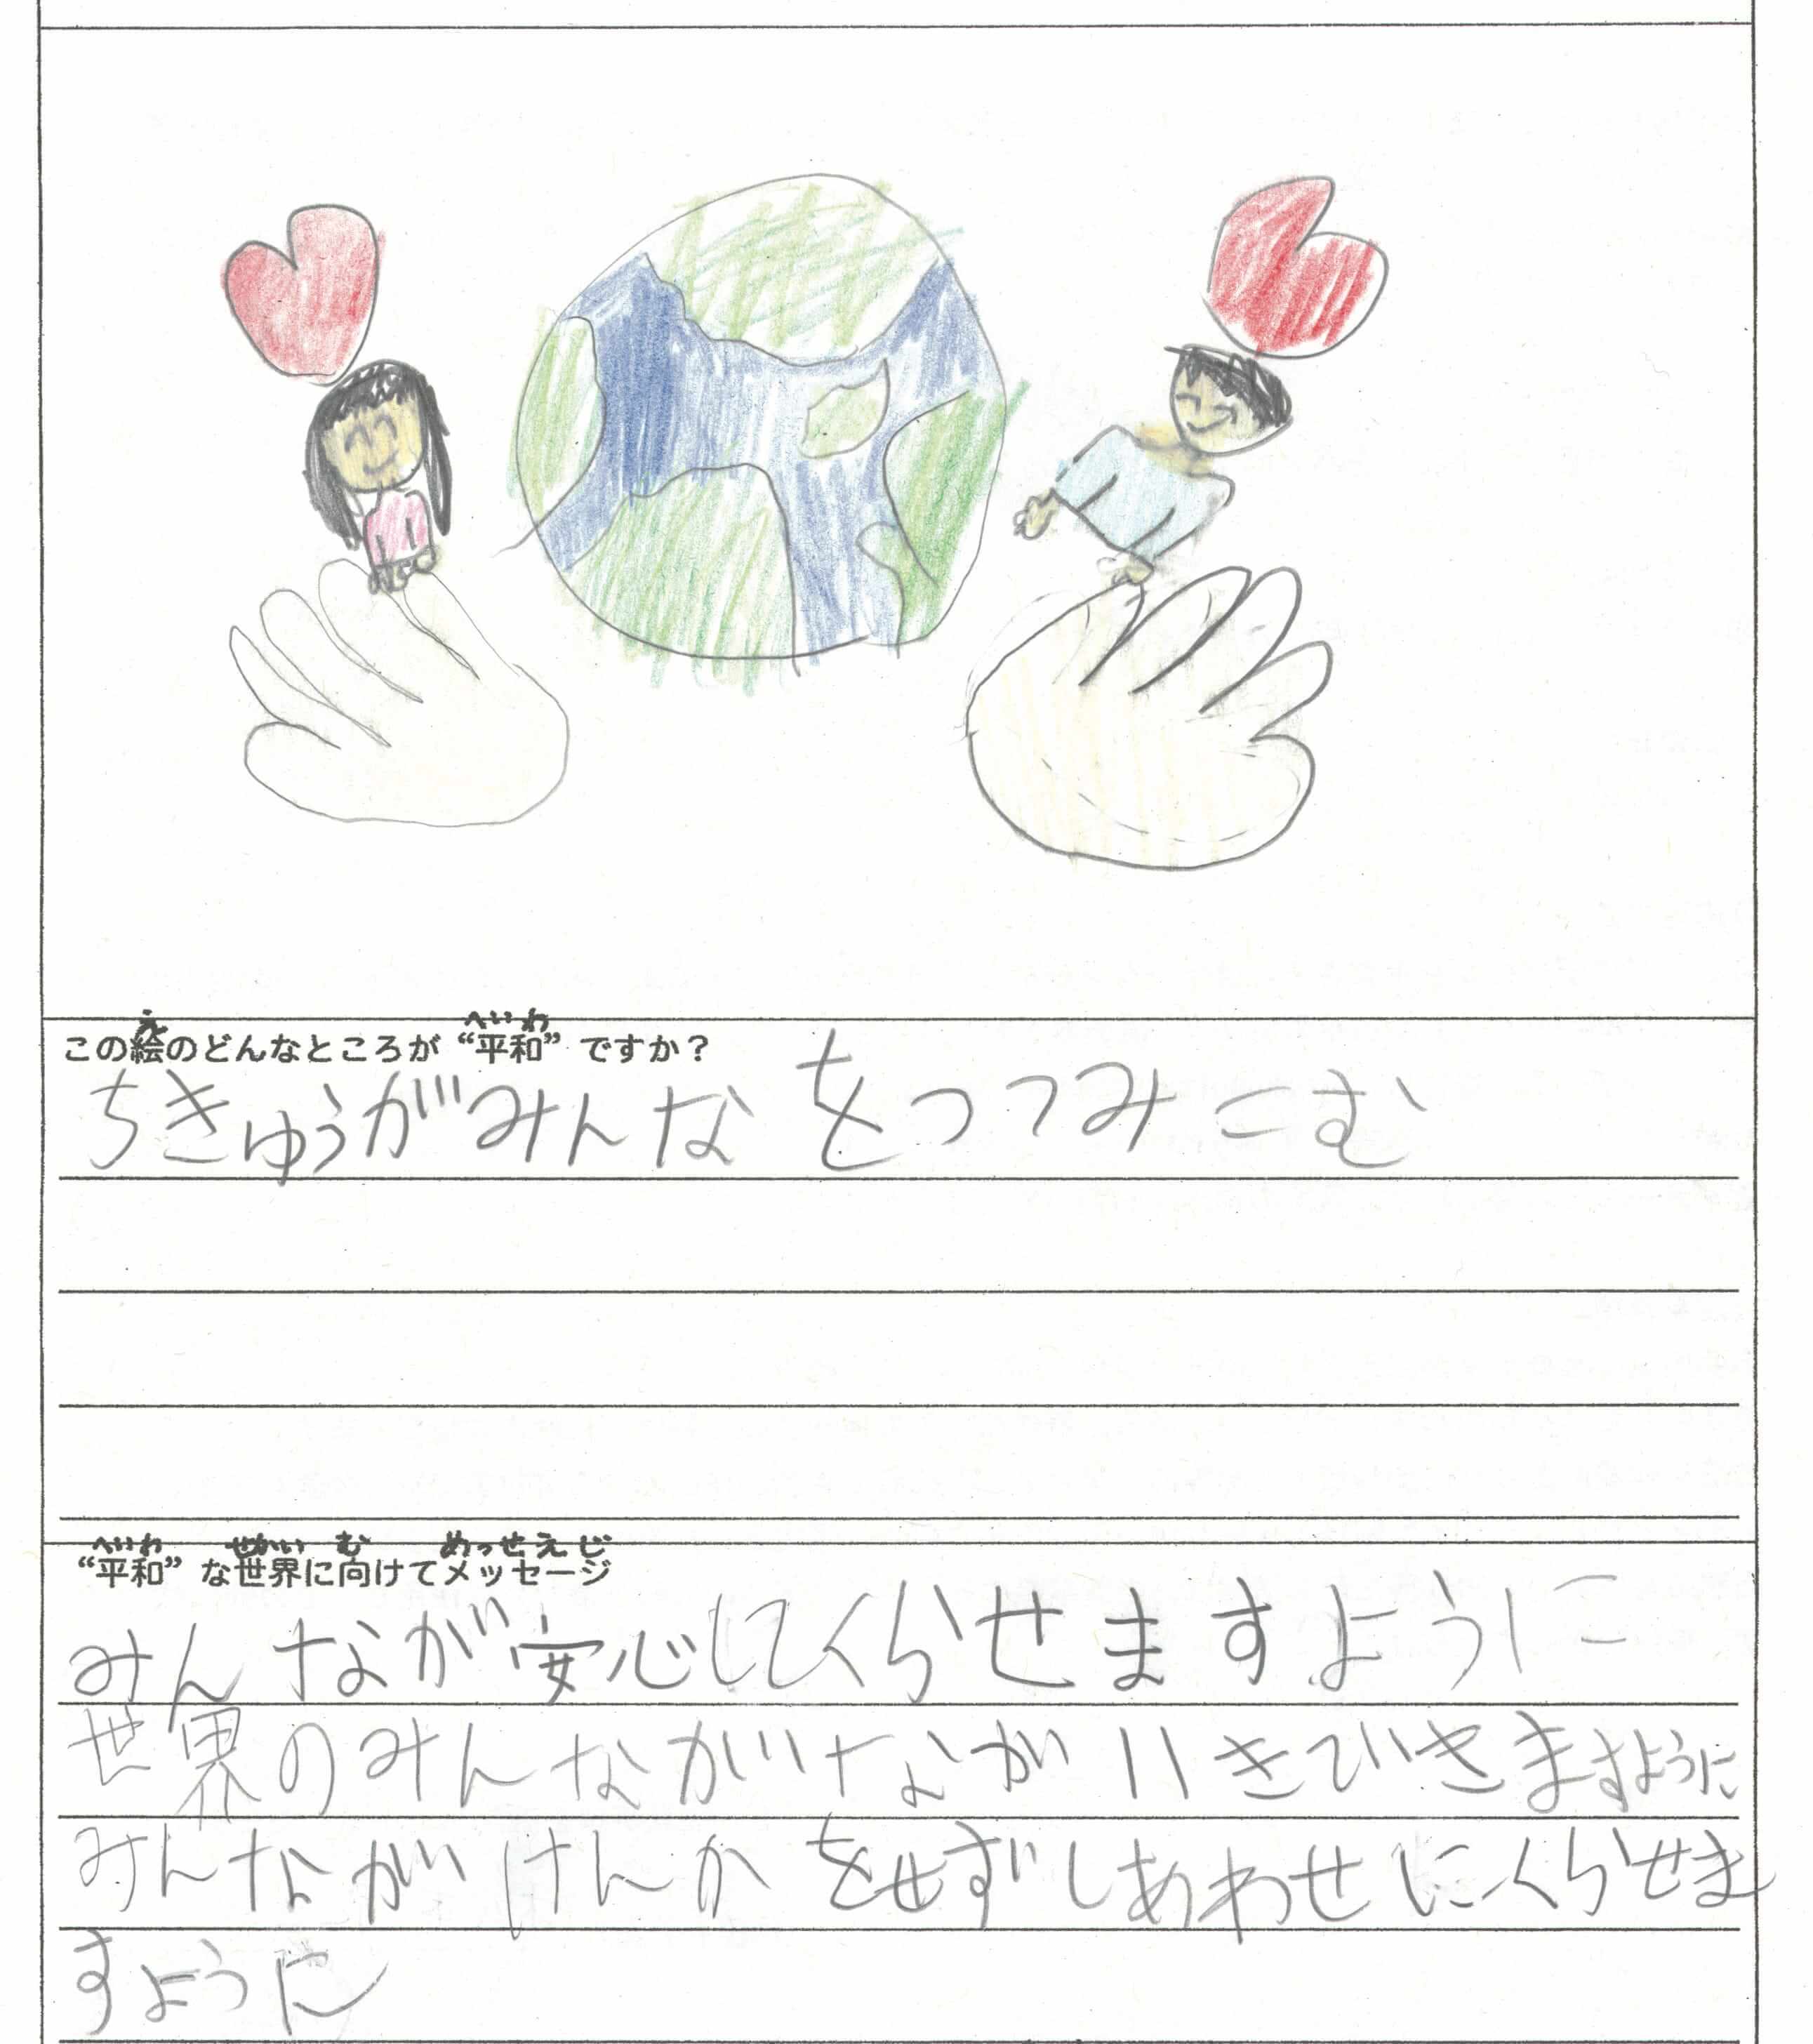 この絵のどんなところが“平和”ですか？
ちきゅうがみんなをつつみこむ
“平和”な世界に向けてメッセージ
みんなが安心してくらせますように
世界のみんながながいきできますように
みんながけんかをせずしあわせにくらせま
すように